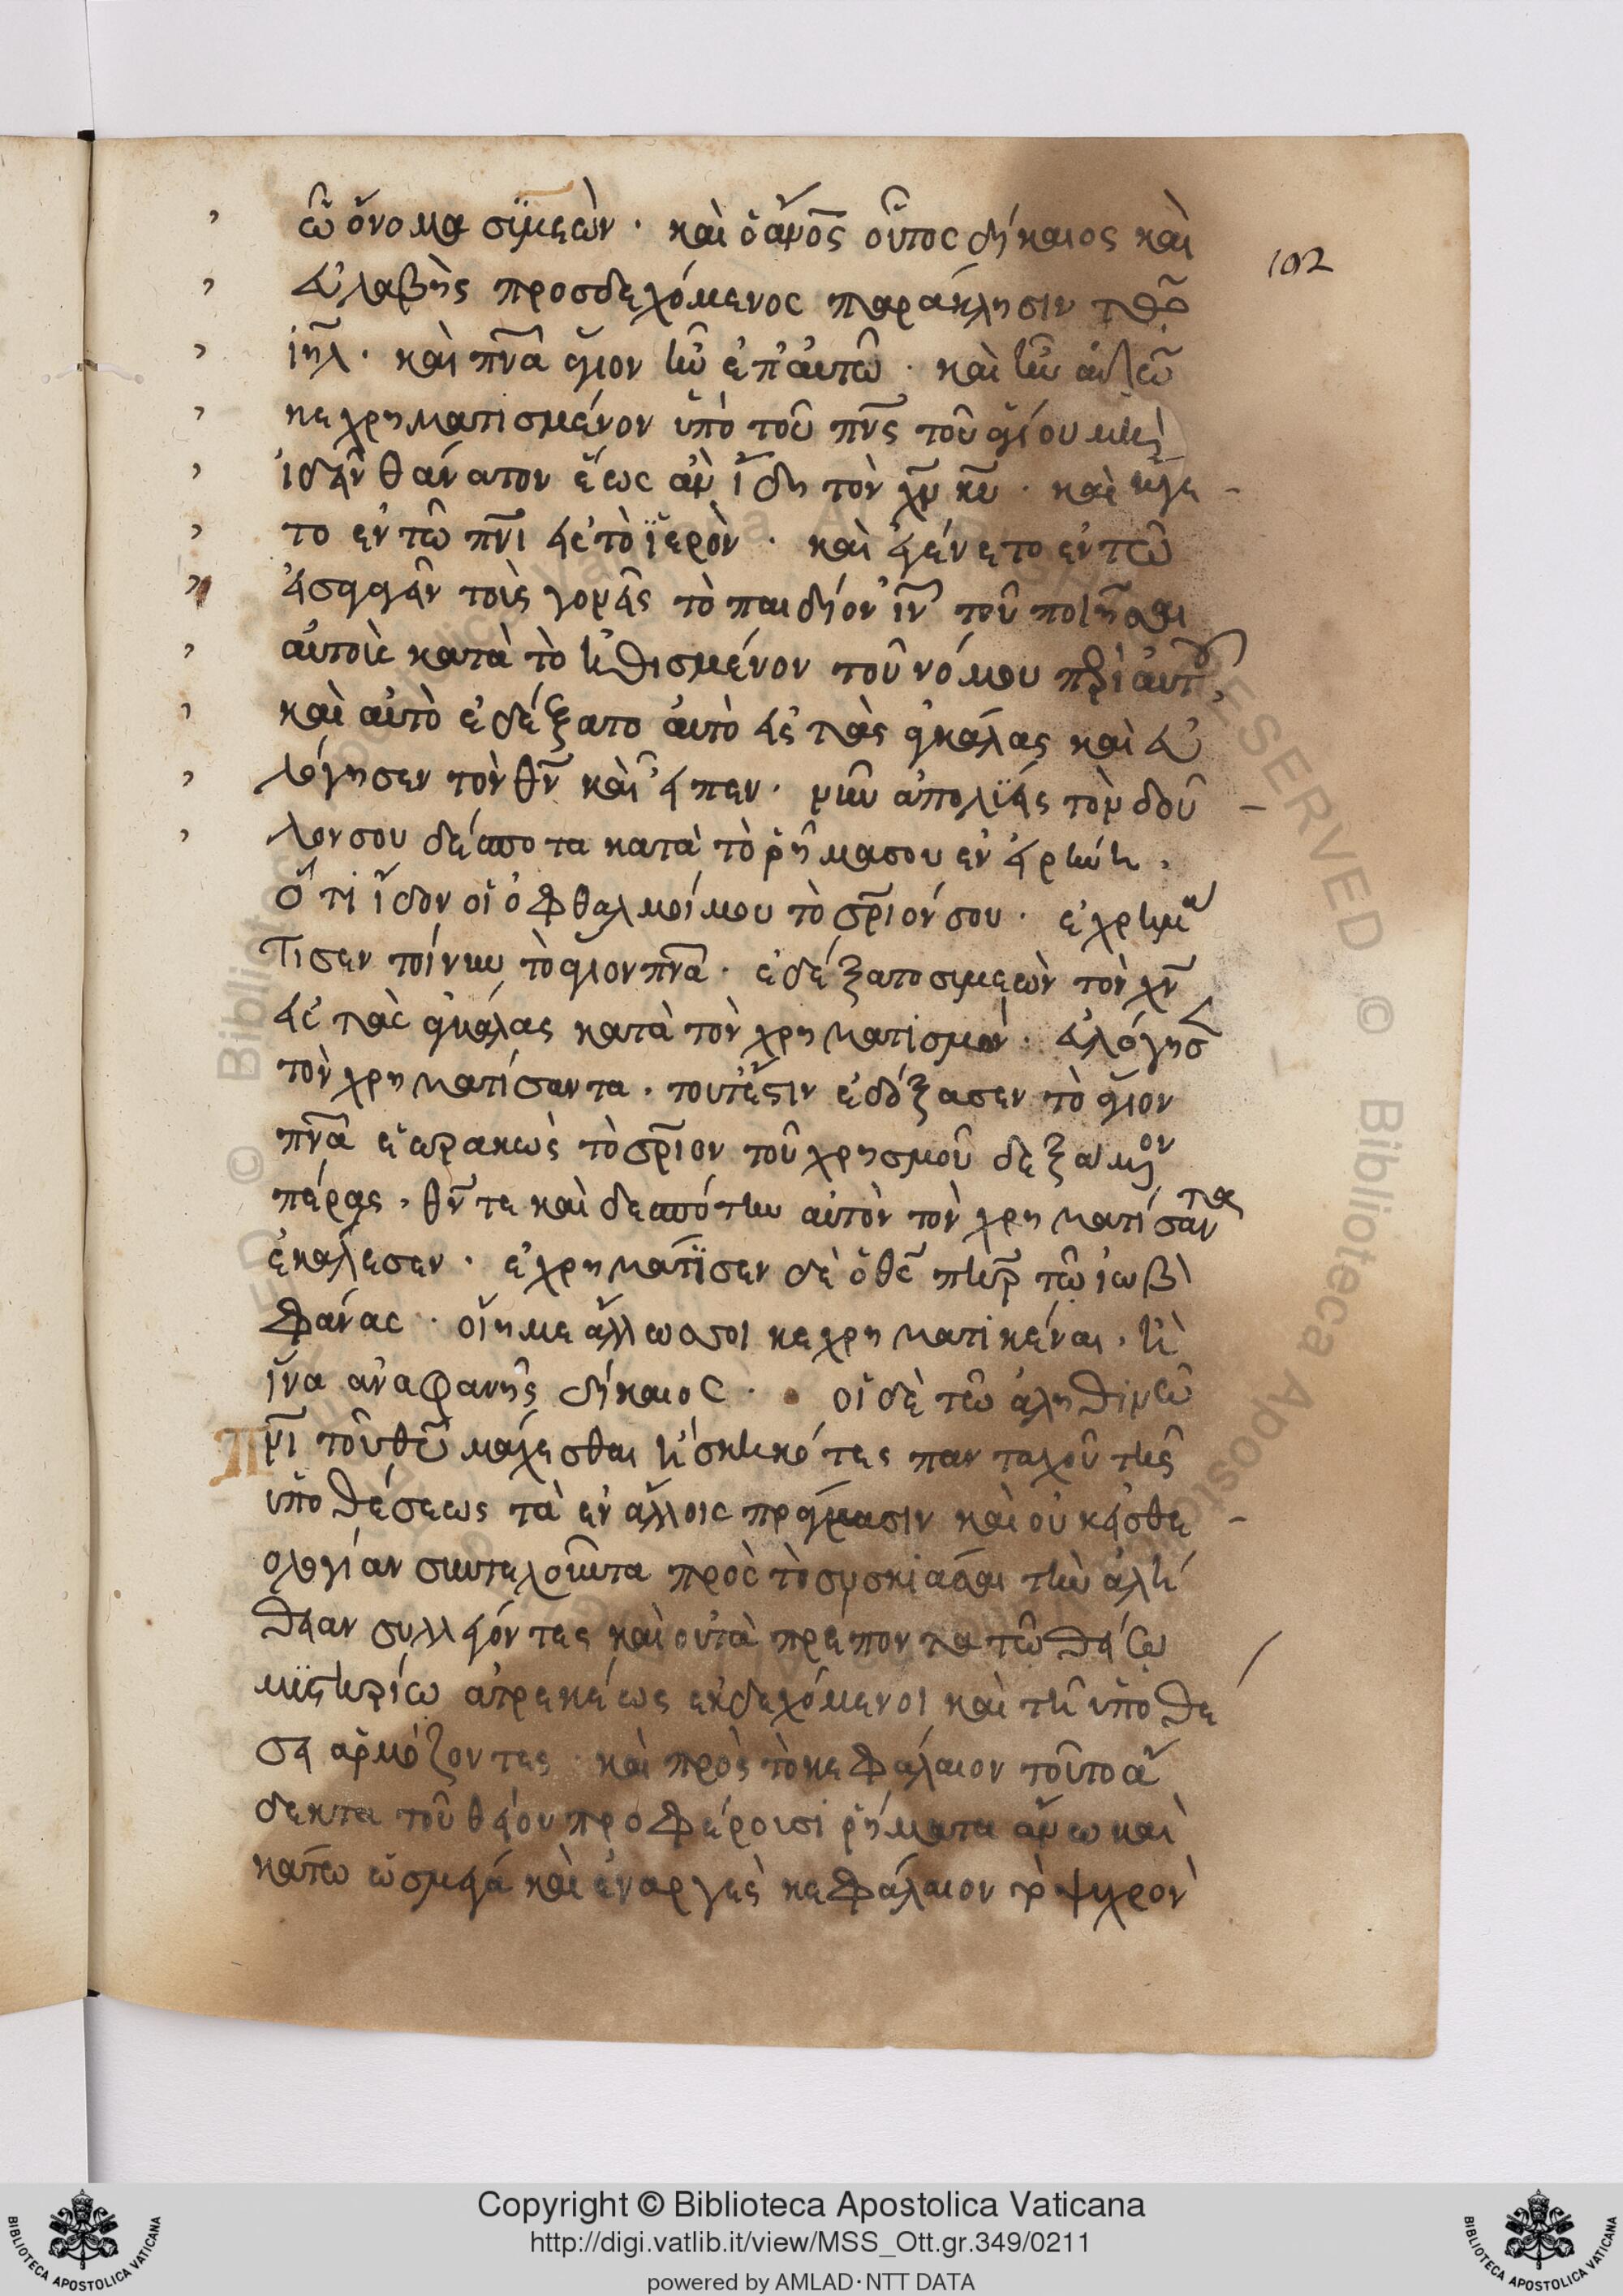 ὧ ὄνομα σϊμεὼν · καὶ ὁ ἀνο̅ς οὗτος δήκαιος καὶ
102
εὐλαβὴς προσδεχόμενος παράκλησιν τοῦ
ιη̅λ · καὶ πν̅α ἅγιον ἦν ἐπ' αυτῶ · καὶ ἦν αὐτῶ
κεχρηματισμένον ὑπὸ τοῦ πν̅ς τοῦ ἁγίου μὴ
ἰδεῖν θάνατον ἕως ἂν ἴδη τὸν χν̅ κυ̅ · καὶ ἤγε -
το ἐν τῶ πν̅ι εἰς τὸ ϊερὸν · καὶ ἐγένετο ἐν τῶ
εἰσαγαγεῖν τοὺς γονεῖς τὸ παιδήον ιν̅ τοῦ ποιῆσαι
αὐτοὺς κατὰ τὸ ἠθισμένον τοῦ νόμου περὶ αὐτοῦ,
καὶ αὐτὸ ἐδέξατο αὐτὸ εἰς τὰς ἀγκάλας καὶ εὐ
λόγησεν τὸν θν̅ καὶ εἶπεν · νῦν ἀπολϊεις τὸν δοῦ -
λον σου δέσποτα κατὰ τὸ ῥῆμα σου ἐν εἰρήνη ·
ὅτι ἴδον οἱ ὀφθαλμοί μου τὸ σρ̅ιόν σου · ἐχρημα
τισεν τοίνυν τὸ ἅγιον πν̅α · ἐδέξατο σιμεὼν τὸν χν̅
εἰς τὰς ἀγκάλας κατὰ τὸν χρηματισμὸν · εὐλόγησε
τὸν χρηματίσαντα · τουτέστιν ἐδόξασεν τὸ ἅγιον
πν̅α ἑωρακὼς τὸ σρ̅ιον τοῦ χρησμοῦ δεξάμενον
πέρας · θν̅ τε καὶ δεσπότην αὐτὸν τὸν χρηματίσαντα
ἐκάλεσεν · ἐχρημάτϊσεν δὲ ὁ θς̅ πηρ̅ τῶ ἰωβ
φάνας · οἴη με ἄλλως σοι κεχρηματικέναι · ἢ
ἵνα ἀναφανῆς δήκαιος · οἱ δὲ τῶ ἀληθινῶ
πν̅ι τοῦ θυ̅ μάχεσθαι ἠσκηκότες πανταχοῦ τῆς
ὑποθέσεως τὰ ἐν ἄλλοις πράγμασιν καὶ οὐκ εἰς θε -
ολογίαν συντελοῦντα πρὸς τὸ συσκιάσαι τὴν ἀλή
θειαν συλλέγοντες καὶ οὐ τὰ πρέποντα τῶ θείω
μϊστηρίω ἀτρεκέως ἐκδεχόμενοι καὶ τῆ ὑποθέ
σει ἁρμόζοντες καὶ πρὸς τὸ κεφάλαιον τοῦτο ἄ
δεκτα τοῦ θείου προφέρουσι ῥήματα ἄνω καὶ
κάτω ὡς μέγα καὶ ἐναργὲς κεφάλαιον τὸ ψυχρὸν
Copyright © Biblioteca Apostolica Vaticana
http://digi.vatlib.it/view/MSS_Ott.gr.349/0211
powered by AMLAD·NTT DATA
BIBLIOTECA APOSTOLICA VATICANA
BIBLIOTECA APOSTOLICA VATICANA